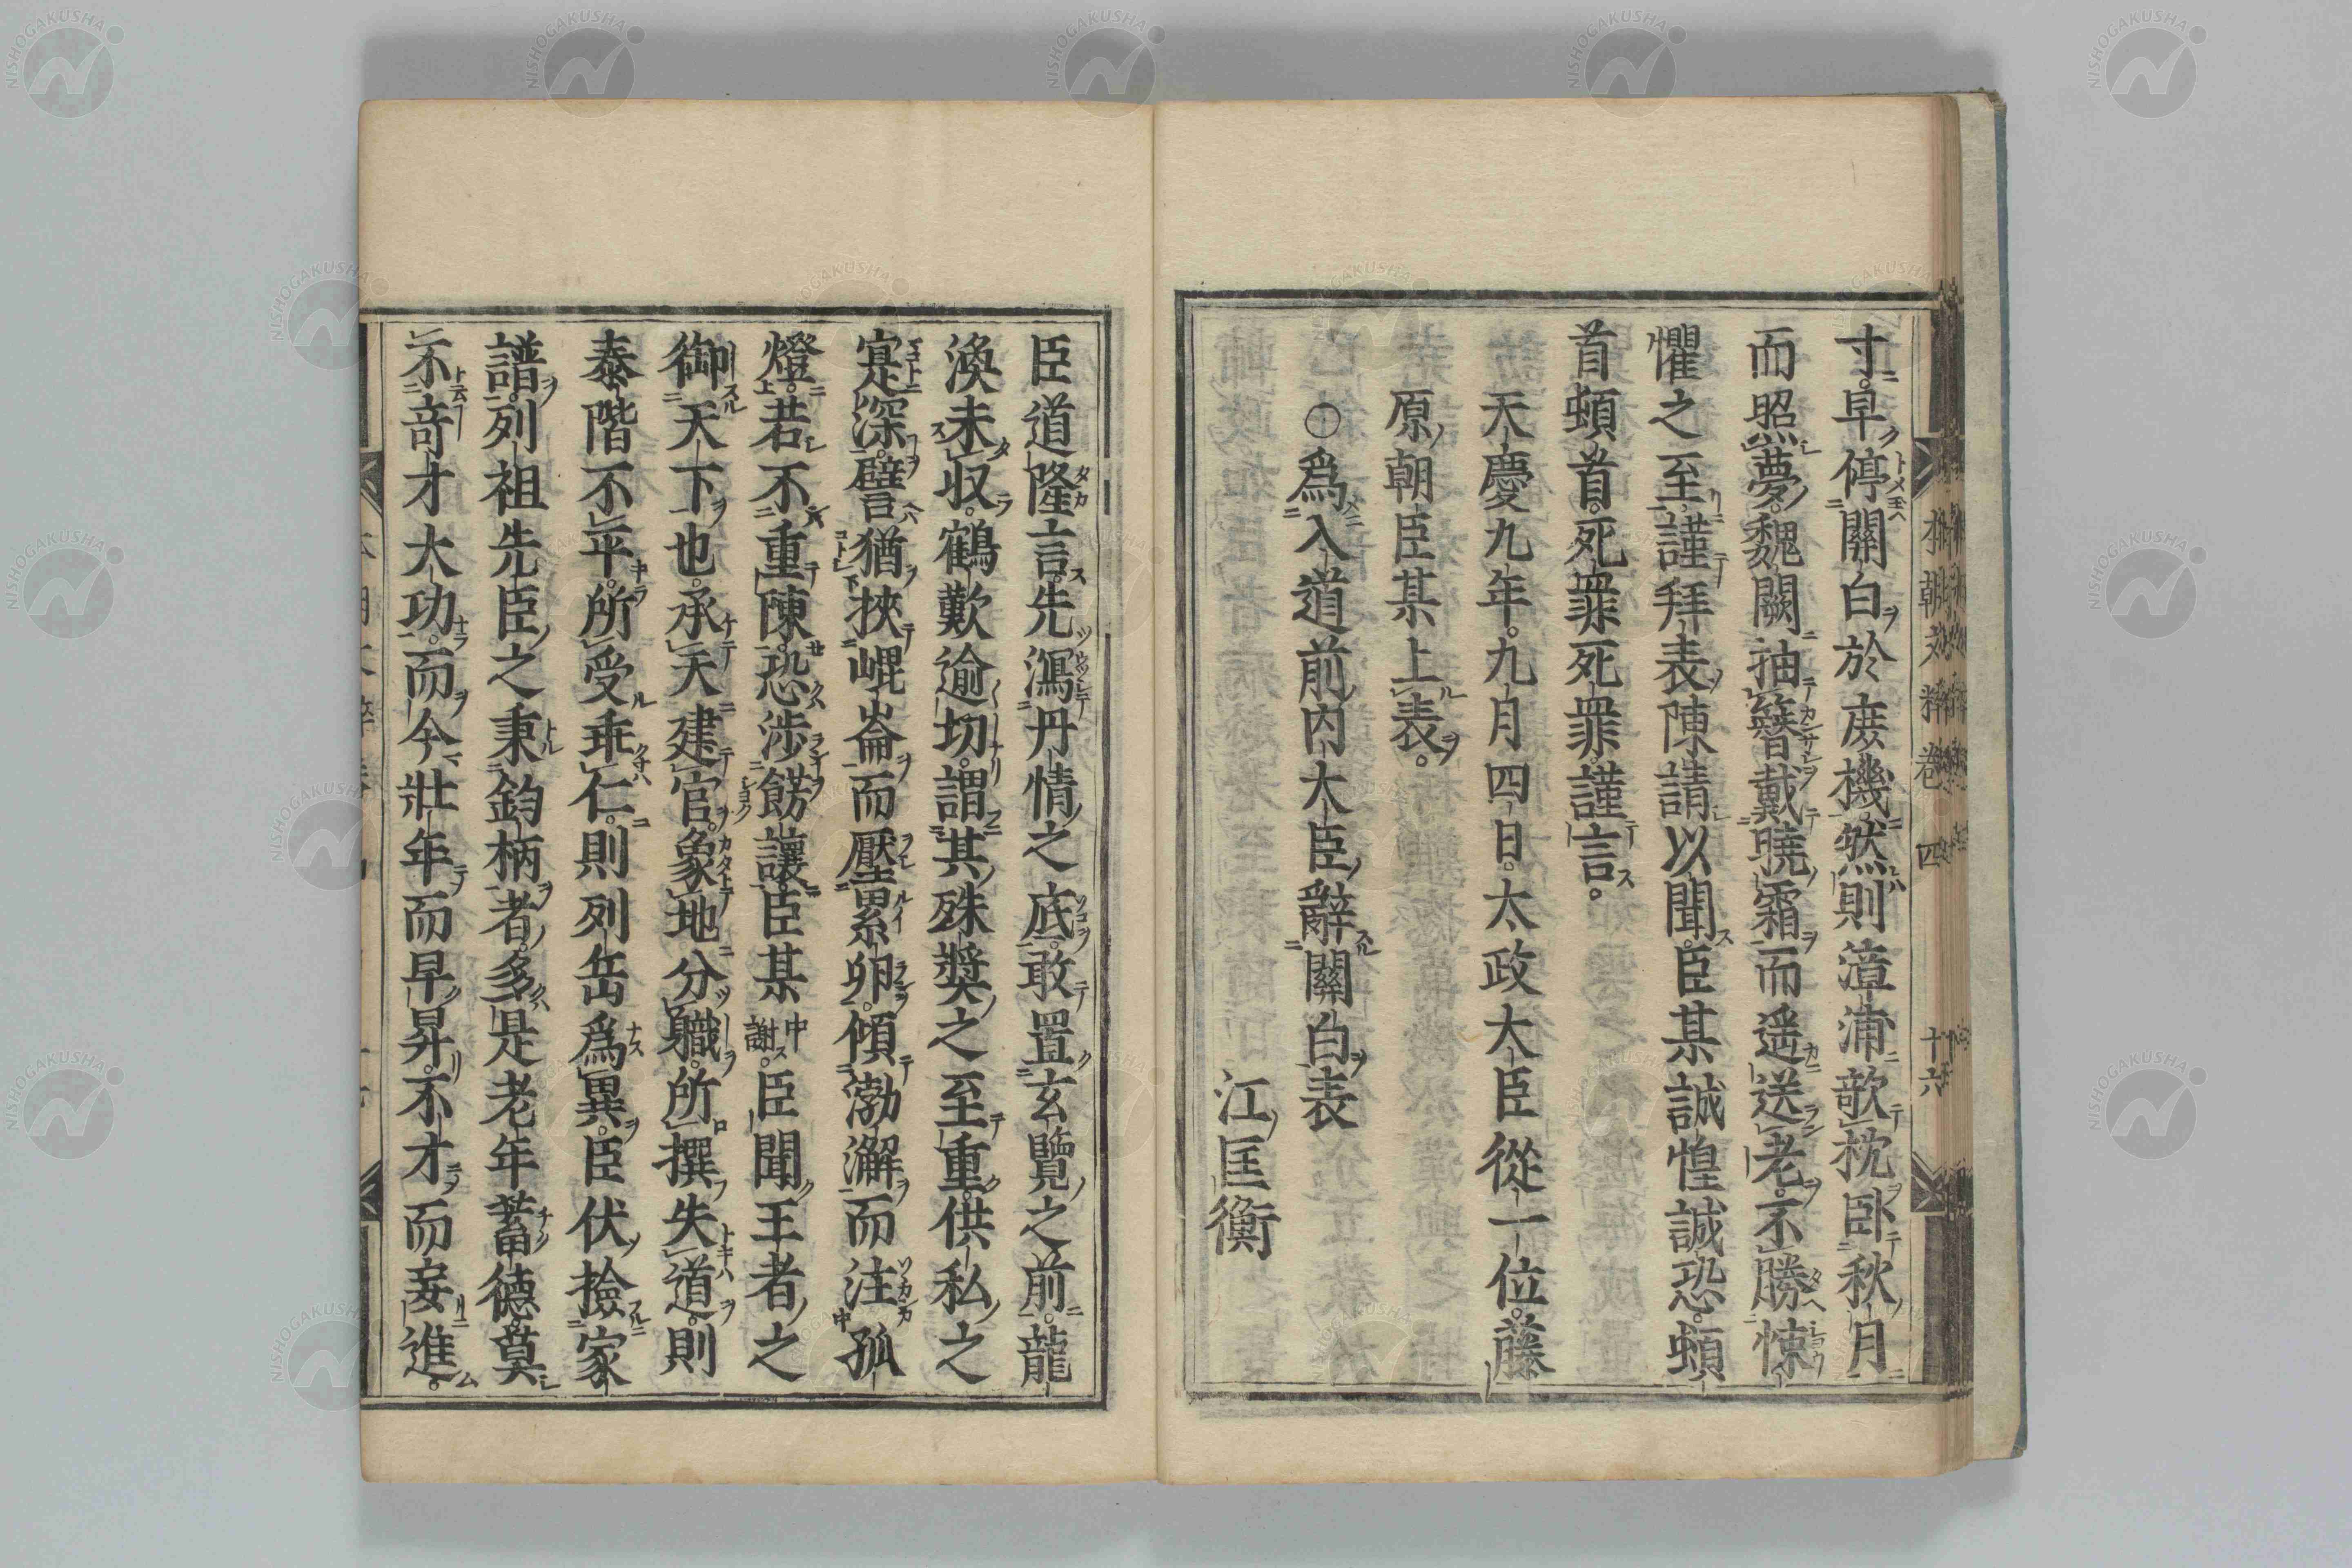 寸。早停關白於庶機。然則漳浦歌枕卧秋月
而照夢。魏闕抽簪戴曉霜而遥送老。不勝悚
懼之至。謹拜表陳請以聞。臣某誠惶誠恐。頓
首頓首。死罪死罪。謹言。
天慶九年。九月四日。太政大臣從一位。藤
原朝臣某上表。
○爲入道前内大臣辭關白表
江匡衡
臣道隆言。先瀉丹情之底。敢置玄覽之前。龍
渙未收。鶴歎逾切。謂其殊奬之至重。供私之
寔深。譬猶挾崐崙而壓累卵。傾渤澥而注孤
燈。若不重陳。恐涉餝讓。臣某中謝。臣聞王者之
御天下也。承天建官。象地分職。所撰失道。則
泰階不平。所受乖仁。則列岳爲異。臣伏撿家
譜。列祖先臣之秉鈞柄者。多是老年蓄德。莫
不奇才大功。而今壯年而早昇。不才而妄進。
本朝文粹卷四
十六
NISHOGAKUSHA